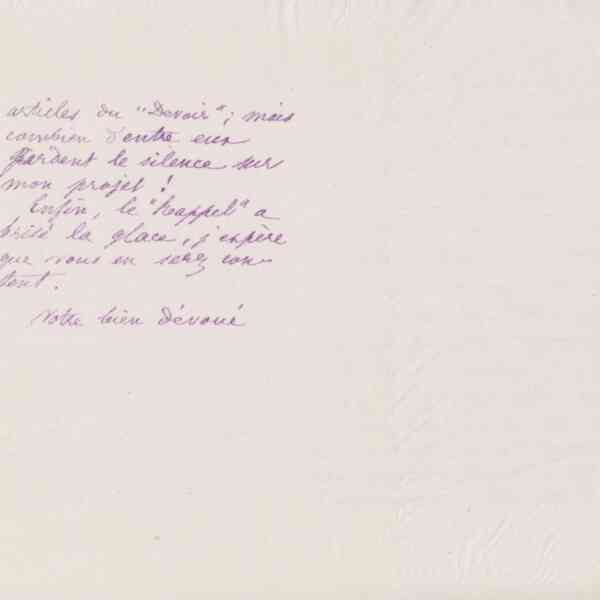 articles du "Devoir"; mais
combien d'entre eux
gardent le silence sur
mon projet !
Enfin, le "Rappel" a
brisé la glace, j'espère
que vous en serez con-
tent.
Votre bien Dévoué